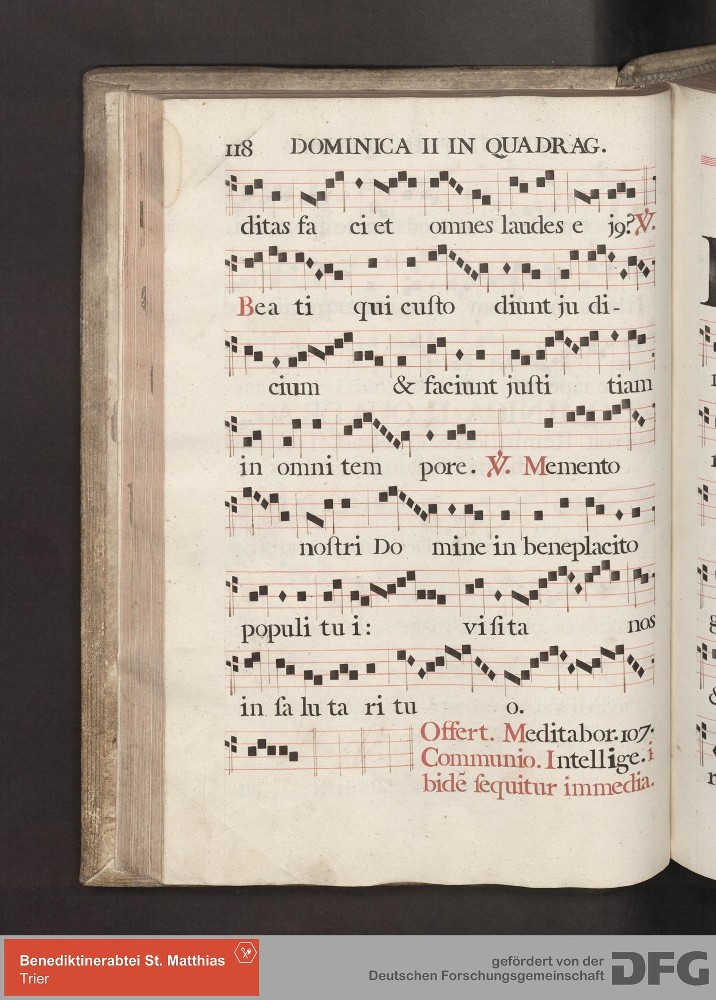 118 DOMINICA II IN QUADRAG.
ditas fa ci et omnes laudes e j9? ℣.
Bea ti qui custo diunt ju di-
cium & faciunt justi tiam
in omni tem pore. ℣. Memento
nostri Do mine in beneplacito
populi tui: visita nos
in sa lu ta ri tu o.
Offert. Meditabor. 107.
Communio. Intellige. i
bidē sequitur immedia.
Benediktinerabtei St. Matthias
Trier
gefördert von der
Deutschen Forschungsgemeinschaft
DFG